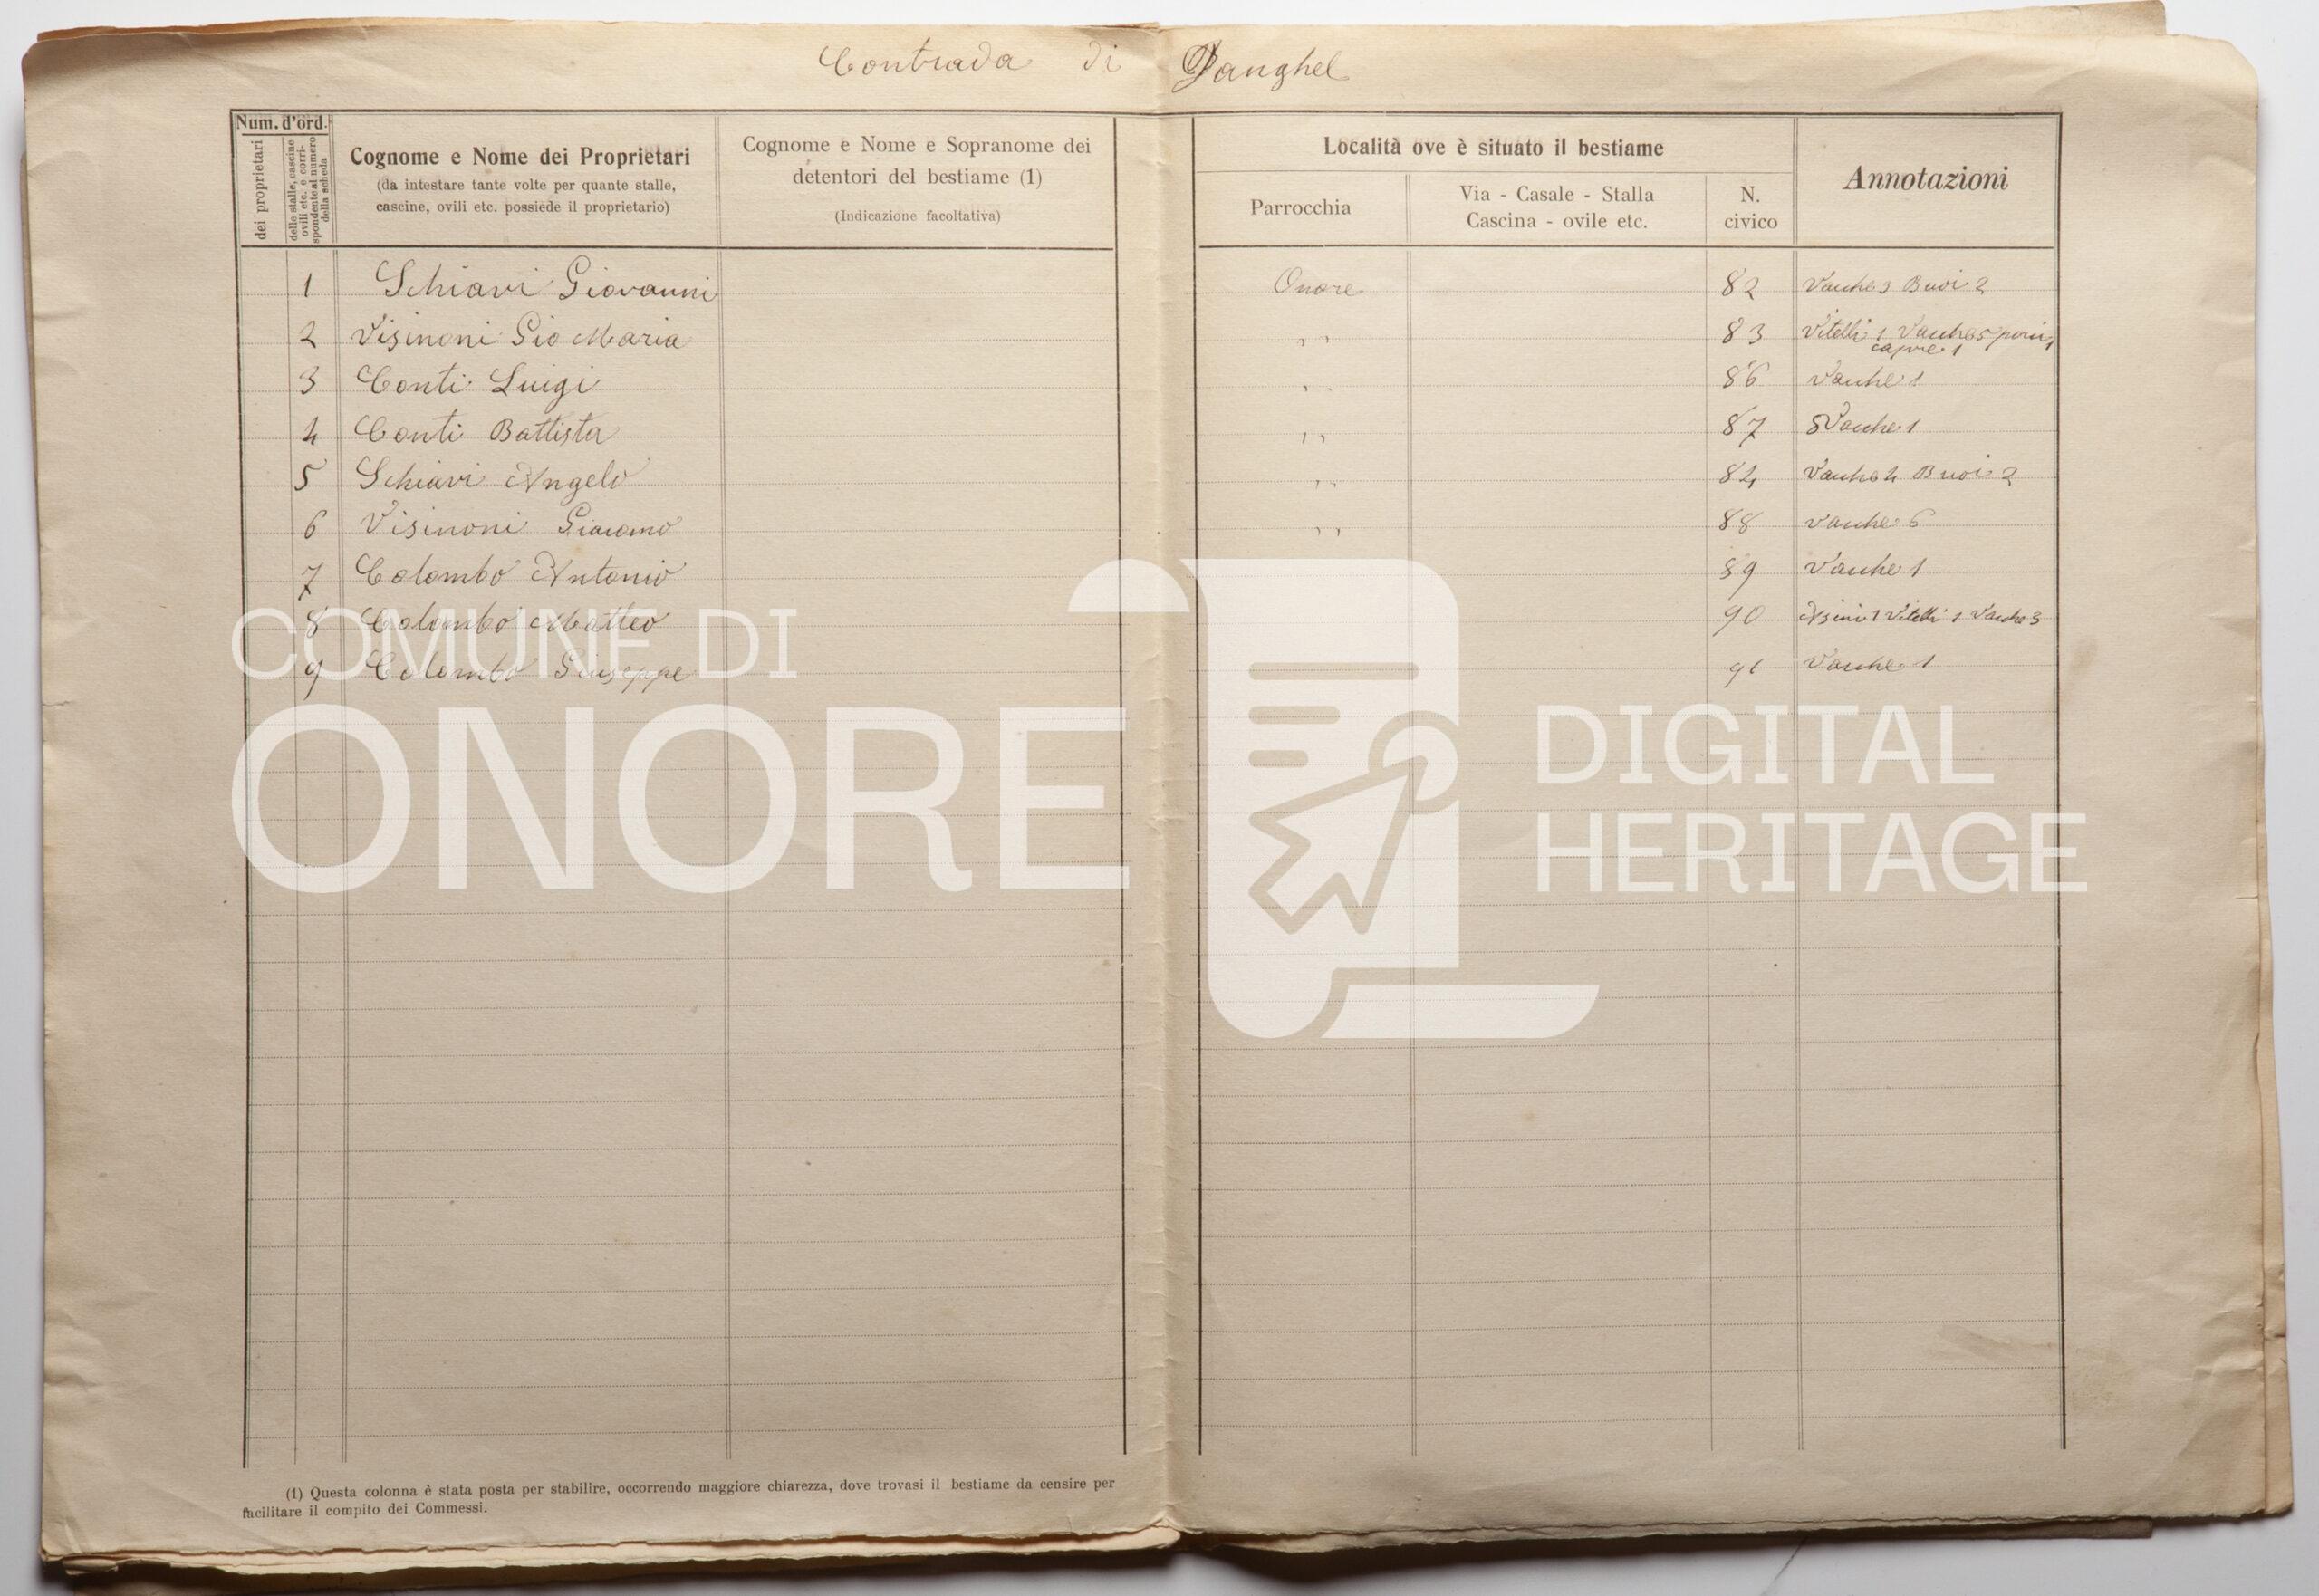 Contrada di Danghel
Num. d'ord.
dei proprietari
delle stalle, cascine
ovili etc. e corri-
spondente al numero
della scheda
Cognome e Nome dei Proprietari
(da intestare tante volte per quante stalle,
cascine, ovili etc. possiede il proprietario)
Cognome e Nome e Sopranome dei
detentori del bestiame (1)
(Indicazione facoltativa)
Località ove è situato il bestiame
Parrocchia
Via - Casale - Stalla
Cascina - ovile etc.
N.
civico
Annotazioni
1 Schiavi Giovanni Onore 82 Vacche 3 Buoi 2
2 Visinoni Gio Maria ,, 83 Vitelli 1 Vacche 5
capre 1
3 Conti Luigi ,, 86 Vacche 1
4 Conti Battista ,, 87 Vacche 1
5 Schiavi Angelo ,, 84 Vacche 4 Buoi 2
6 Visinoni Giacomo ,, 88 Vacche 6
7 Colombo Antonio 89 Vacche 1
8 Colombo Matteo 90 Asini 1 Vitelli 1 Vacche 3
9 Colombo Giuseppe 91 Vacche 1
COMUNE DI
ONORE
DIGITAL
HERITAGE
(1) Questa colonna è stata posta per stabilire, occorrendo maggiore chiarezza, dove trovasi il bestiame da censire per
facilitare il compito dei Commessi.